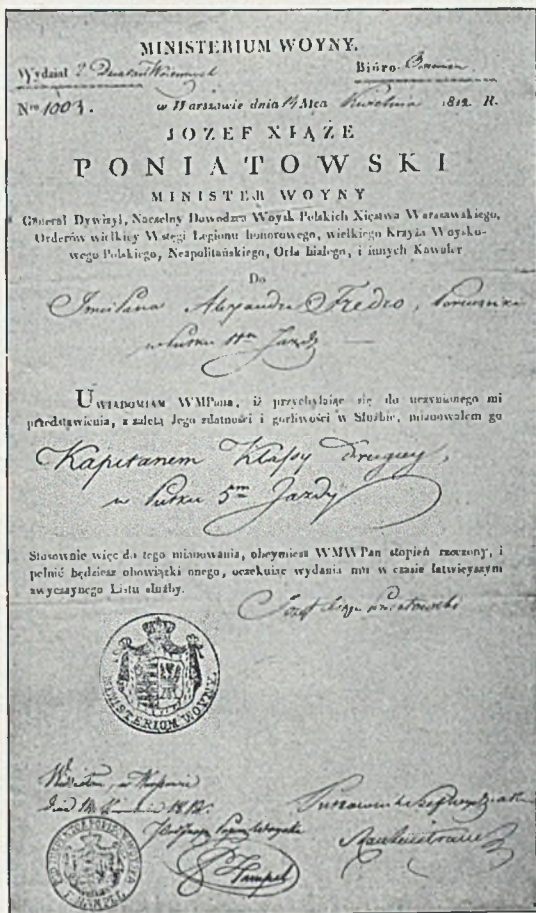 MINISTERIUM WOYNY.
Wydział 2 Działań Woiennych Biuro
Nro 1003. w Warszawie dnia 14 Mca Kwietnia 1812 R.
JOZEF XIĄŻE
PONIATOWSKI
MINISTER WOYNY
Generał Dywizyi, Naczelny Dowodzca Woysk Polskich Xięstwa Warszawskiego,
Orderów wielkiey Wstęgi Legionu honorowego, wielkiego Krzyża Woysko-
wego Polskiego, Neapolitańskiego, Orła białego, i innych Kawaler
Do
Jmć Pana Alexandra Fredro, Porucznika
w Pułku Jazdy
UWIADOMIAM WMPana, iż przychylaiąc się do uczynionego mi
przedstawienia, z zaletą Jego zdatności i gorliwości w Służbie, mianowałem go
Kapitanem Klassy Drugiey,
w Pułku 5m Jazdy
Stosownie więc do tego mianowania, obeymiesz WMWPan stopień rzeczony, i
pełnić będziesz obowiązki onego, oczekuiąc wydania mu w czasie łatwieyszym
zwyczaynego Listu służby.
Józef Xiąże Poniatowski
MINISTERIUM WOYNY
Widziałem, w
Dnia 14 1812.
Hampel